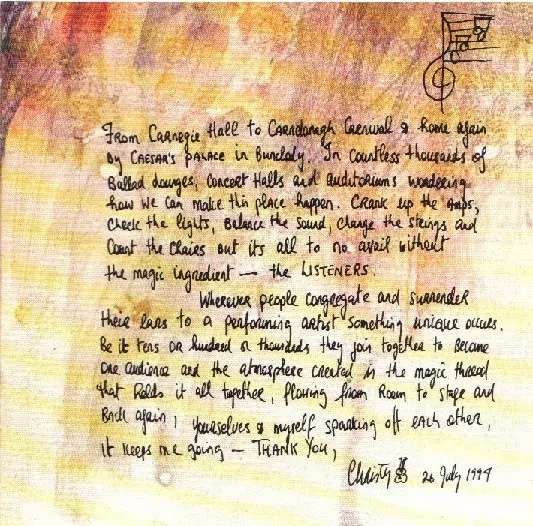 From Carnegie Hall to Carndonagh Carnival & home again
by CAESAR'S PALACE in Bunclody. In Countless thousands of
Ballad lounges, concert Halls and auditoriums wondering
how we can make this place happen. Crank up the amps,
check the lights, Balance the sound, change the strings and
Count the chairs but its all to no avail without
the magic ingredient — the LISTENERS.
Wherever people congregate and surrender
their ears to a performing artist something unique occurs.
Be it tens or hundred or thousands they join together to Become
one audience and the atmosphere created is the magic thread
that holds it all together, flowing from Room to stage and
Back again, yourselves & myself sparking off each other,
it keeps me going — THANK YOU,
Christy 26 July 1994